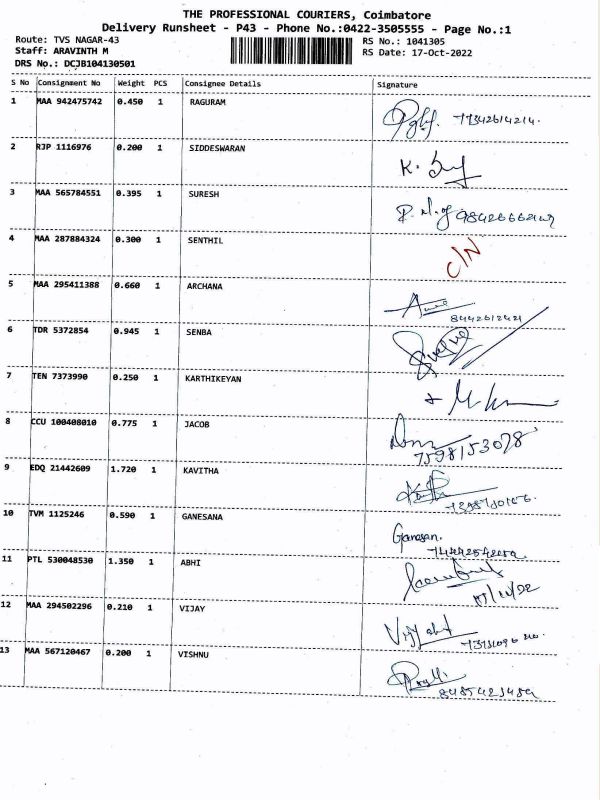 THE PROFESSIONAL COURIERS, Coimbatore
Delivery Runsheet - P43 - Phone No.:0422-3505555 - Page No.:1
Route: TVS NAGAR-43 RS No.: 1041305
Staff: ARAVINTH M RS Date: 17-Oct-2022
DRS No.: DCJB104130501
S No Consignment No Weight PCS Consignee Details Signature
1 MAA 942475742 0.450 1 RAGURAM
2 RJP 1116976 0.200 1 SIDDESWARAN
3 MAA 565784551 0.395 1 SURESH
4 MAA 287884324 0.300 1 SENTHIL C/N
5 MAA 295411388 0.660 1 ARCHANA
6 TDR 5372854 0.945 1 SENBA
7 TEN 7373990 0.250 1 KARTHIKEYAN
8 CCU 100408010 0.775 1 JACOB
7598153078
9 EDQ 21442609 1.720 1 KAVITHA
10 TVM 1125246 0.590 1 GANESANA Ganesan.
11 PTL 530048530 1.350 1 ABHI
12 MAA 294502296 0.210 1 VIJAY
13 MAA 567120467 0.200 1 VISHNU